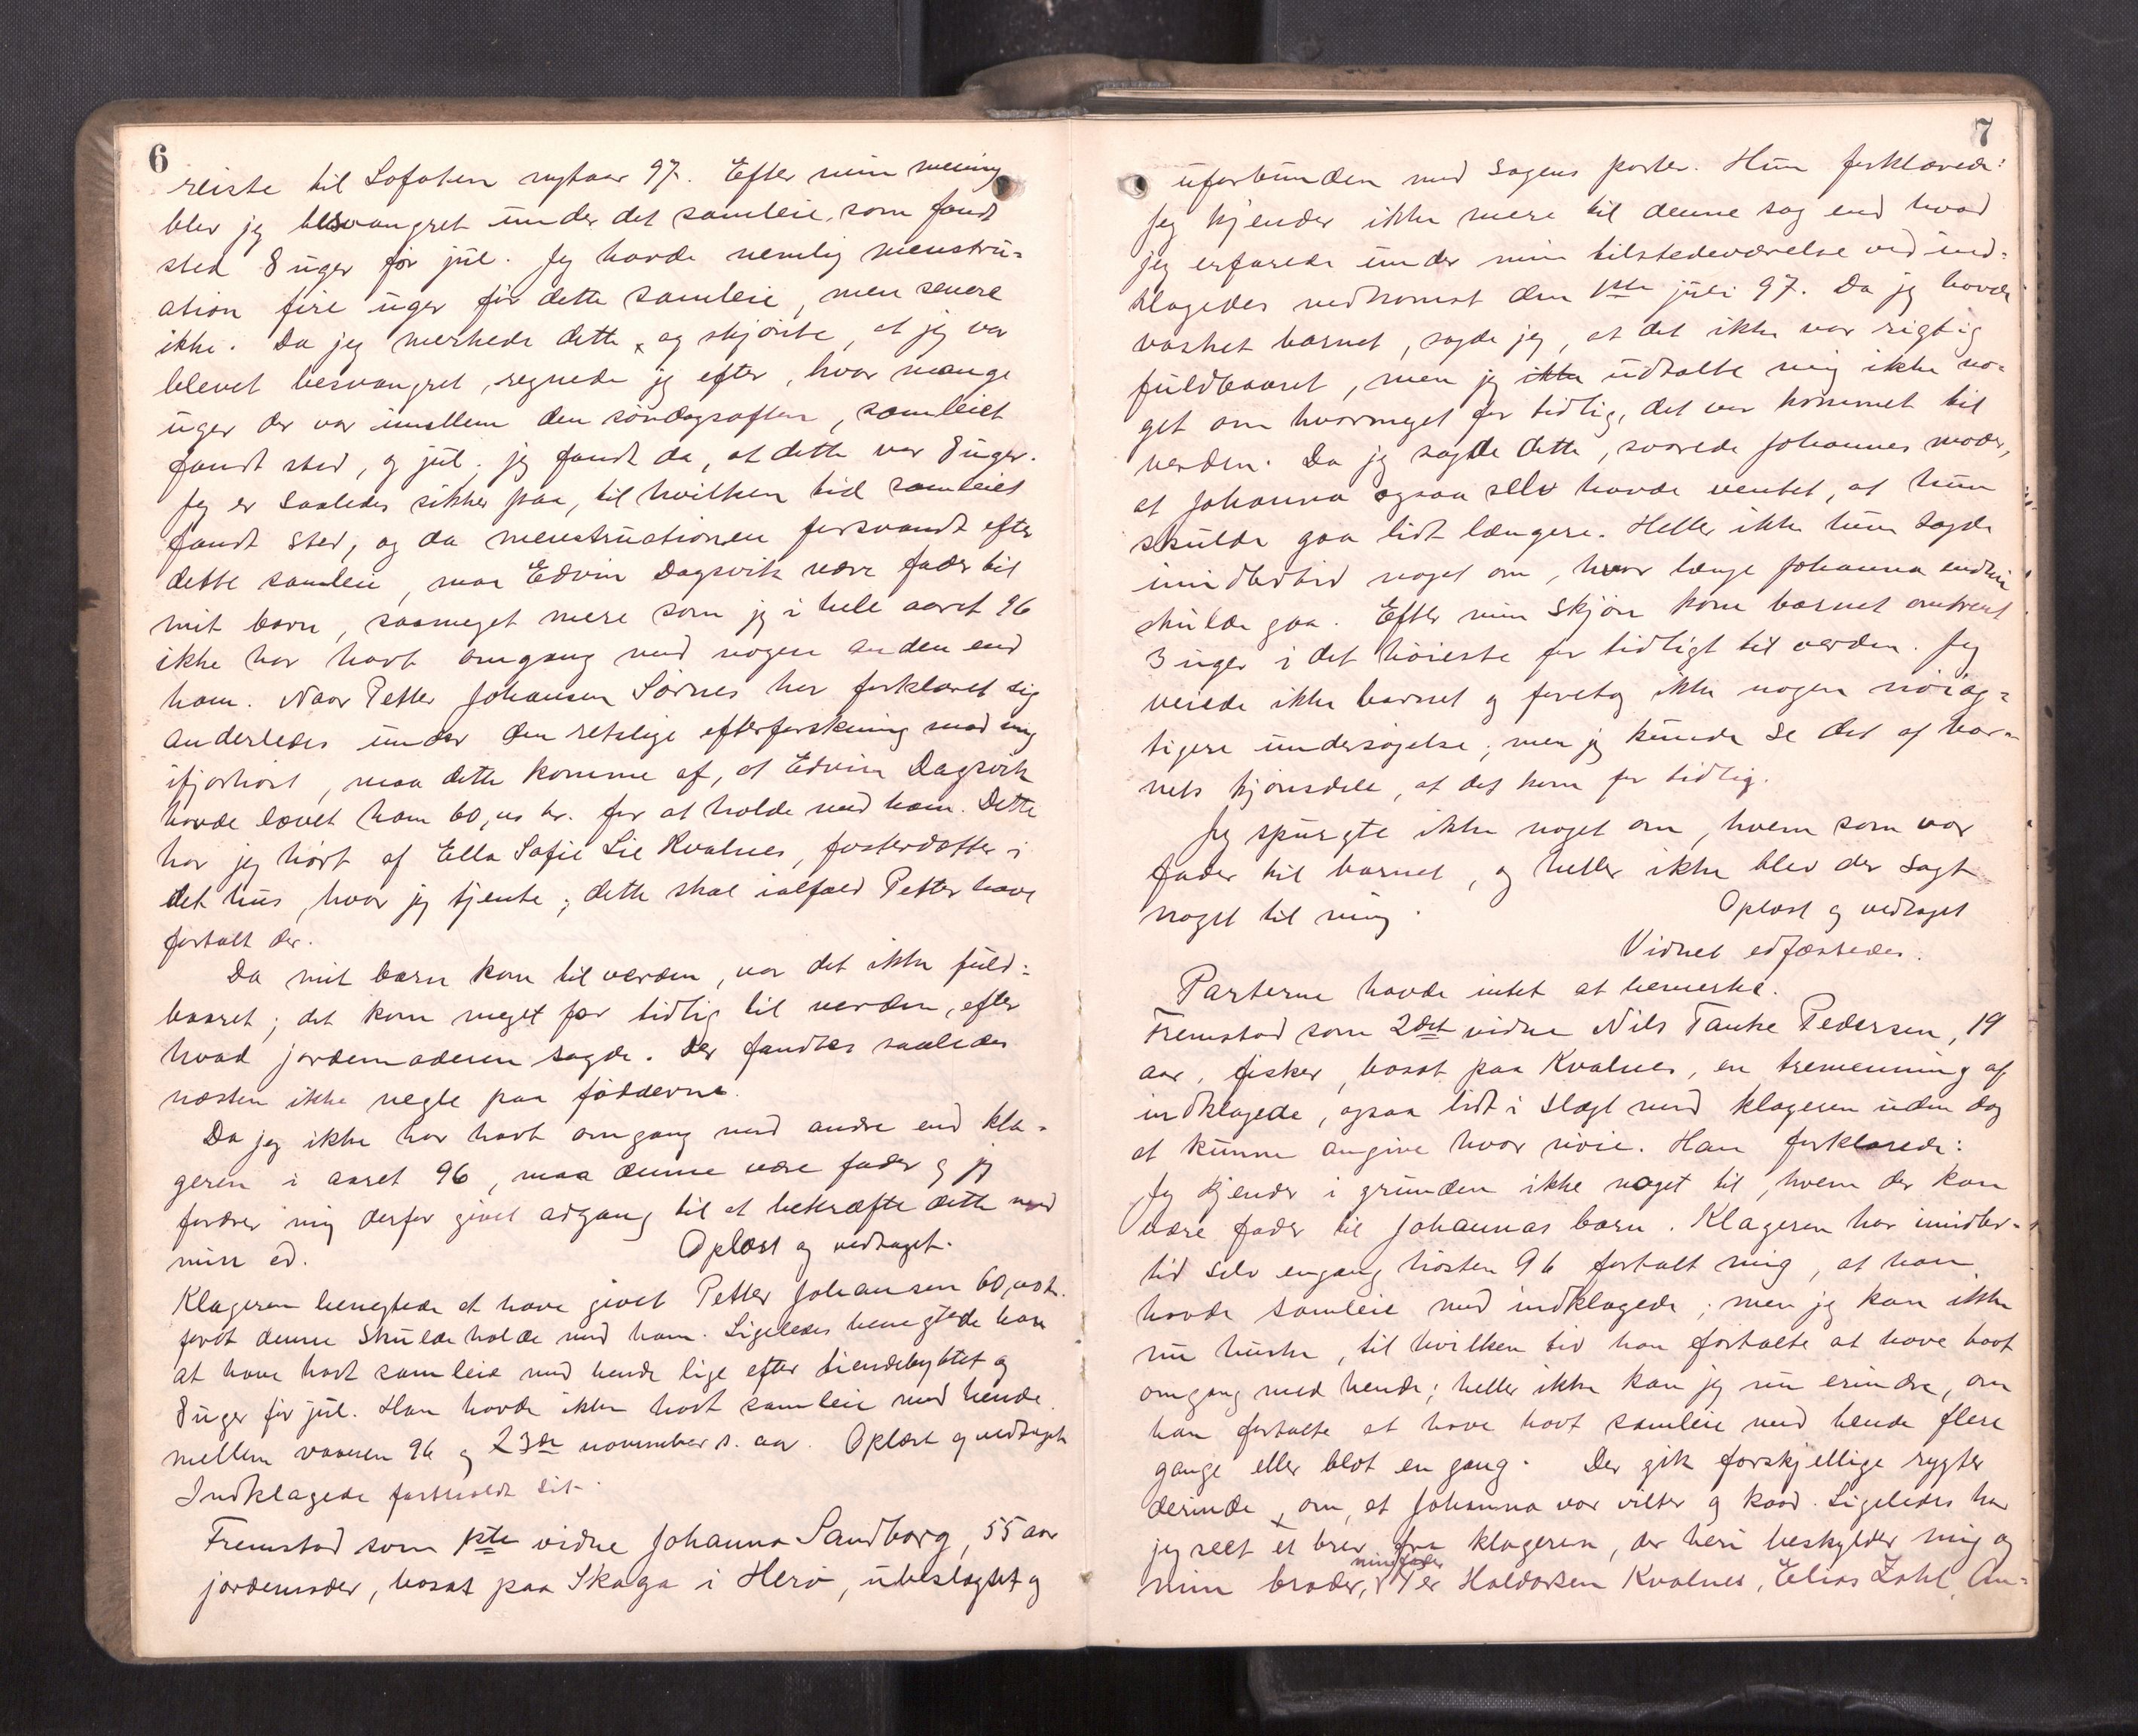 6
reiste til Lofoten nytaar 97. Efter min mening
blev jeg besvangret under det samleie, som fandt
sted 8 uger før jul. Jeg havde nemlig menstru-
ation fire uger før dette samleie, men senere
ikke. Da jeg merkede dette, og skjønte, at jeg var
blevet besvangret, regnede jeg efter, hvor mange
uger der var imellem den søndagsaften, samleiet
fandt sted, og jul. jeg fandt da, at dette var 8 uger.
Jeg er saaledes sikker paa, til hvilken tid samleiet
fandt sted, og da menstruationen forsvandt efter
dette samleie, maa Edvin Dagsvik være fader til
mit barn, saameget mere som jeg i hele aaret 96
ikke har havt omgang med nogen anden end
ham. Naar Petter Johansen Sørnes har forklaret sig
anderledes under den retslige efterforskning mod mig
ifjorhøst, maa dette komme af, at Edvin Dagsvik
havde lovet ham 60,00 kr. for at holde med ham. Dette
har jeg hørt af Ella Sofie Lie Kvalnes, fosterdatter i
det hus, hvor jeg tjente; dette skal ialfald Petter have
fortalt der.
Da mit barn kom til verden, var det ikke fuld-
baaret; det kom meget for tidlig til verden, efter
hvad jordemoderen sagde. Der fandtes saaledes
næsten ikke negle paa fødderne.
Da jeg ikke har havt omgang med andre end kla-
geren i aaret 96, maa denne være fader og jeg
fordrer mig derfor givet adgang til at bekræfte dette med
min ed. Oplæst og vedtaget.
Klageren benegtede at have givet Petter Johansen 60,00 kr.
fordt denne skulde holde med ham. Ligeledes benegtede han
at have havt samleie med hende lige efter tiendebyttet og
8 uger før jul. Han havde ikke havt samleie med hende
mellem vaaren 96 og 23de november s. aar. Oplæst og vedtaget
Indklagede fastholdt sit.
Fremstod som 1ste vidne Johanna Sandborg, 55 aar
jordemoder, bosat paa Skaga i Herø, ubeslægtet og
7
uforbunden med sagens parter. Hun forklarede:
Jeg kjender ikke mere til denne sag end hvad
jeg erfarede under min tilstedeværelse ved ind-
klagedes nedkomst den 1ste juli 97. Da jeg havde
vasket barnet, sagde jeg, at det ikke var rigtig
fuldbaaret, men jeg ikke udtalte mig ikke no-
get om hvormeget for tidlig, det var kommet til
verden. Da jeg sagde dette, svarede Johannes moder,
at Johanna ogsaa selv havde ventet, at hun
skulde gaa lidt længere. Heller ikke hun sagde
imidlertid noget om, hvor længe Johanna endnu
skulde gaa. Efter min skjøn kom barnet omtrent
3 uger i det høieste for tidligt til verden. Jeg
veiede ikke barnet og foretog ikke nogen nøiag-
tigere undersøgelse; men jeg kunde se det af bar-
nets kjønsdele, at det kom for tidlig.
Jeg spurgte ikke noget om, hvem som var
fader til barnet, og heller ikke blev der sagt
noget til mig. Oplæst og vedtaget
Vidnet edfæstedes.
Parterne havde intet at bemerke.
Fremstod som 2det vidne Nils Tanke Pedersen, 19
aar, fisker, bosat paa Kvalnes, en tremenning af
indklagede, ogsaa lidt i slægt med klageren uden dog
at kunne angive hvor nøie. Han forklarede:
Jeg kjender i grunden ikke noget til, hvem der kan
være fader til Johannas barn. Klageren har imidler-
tid selv engang høsten 96 fortalt mig, at han
havde samleie med indklagede; men jeg kan ikke
nu huske, til hvilken tid han fortalte at have havt
omgang med hende; heller ikke kan jeg nu erindre, om
han fortalte at have havt samleie med hende flere
gange eller blot en gang. Der gik forskjellige rygter
derinde, om, at Johanna var vilter og kaad. Ligeledes har
jeg seet et brev fra klageren, der heri beskylder mig og
min broder, min fader Per Haldorsen Kvalnes, Elias Zahl, An-